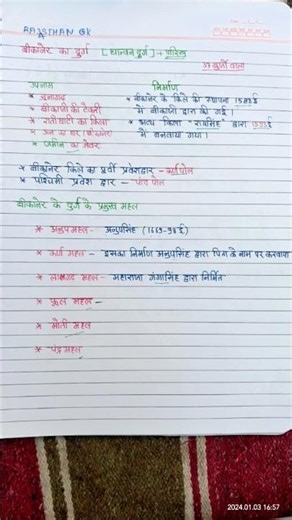 RAJSTHAN GK
बीकानेर का दुर्ग [धान्वन दुर्ग] + पारिख
37 बुर्जों वाला
उपनाम निर्माण
* जूनागढ़ * बीकानेर के किले की स्थापना
* बीकाजी की टेकरी में बीकाजी द्वारा की गई।
* रातीघाटी का किला * भव्य किला "रायसिंह" द्वारा
में बनवाया गया।
* जमीन का जेवर
* बीकानेर किले का पूर्वी प्रवेशद्वार - कर्णपोल
* पश्चिमी प्रवेश द्वार - चांद पोल
बीकानेर के दुर्ग के प्रमुख महल
* अनूपमहल - अनूपसिंह (1669-98ई)
* कर्ण महल - इसका निर्माण अनूपसिंह द्वारा पिता के नाम पर करवाया
* लालगढ़ महल - महाराजा गंगासिंह द्वारा निर्मित
* फूल महल -
* मोती महल
* चंद्र महल
2024.01.03 16:57